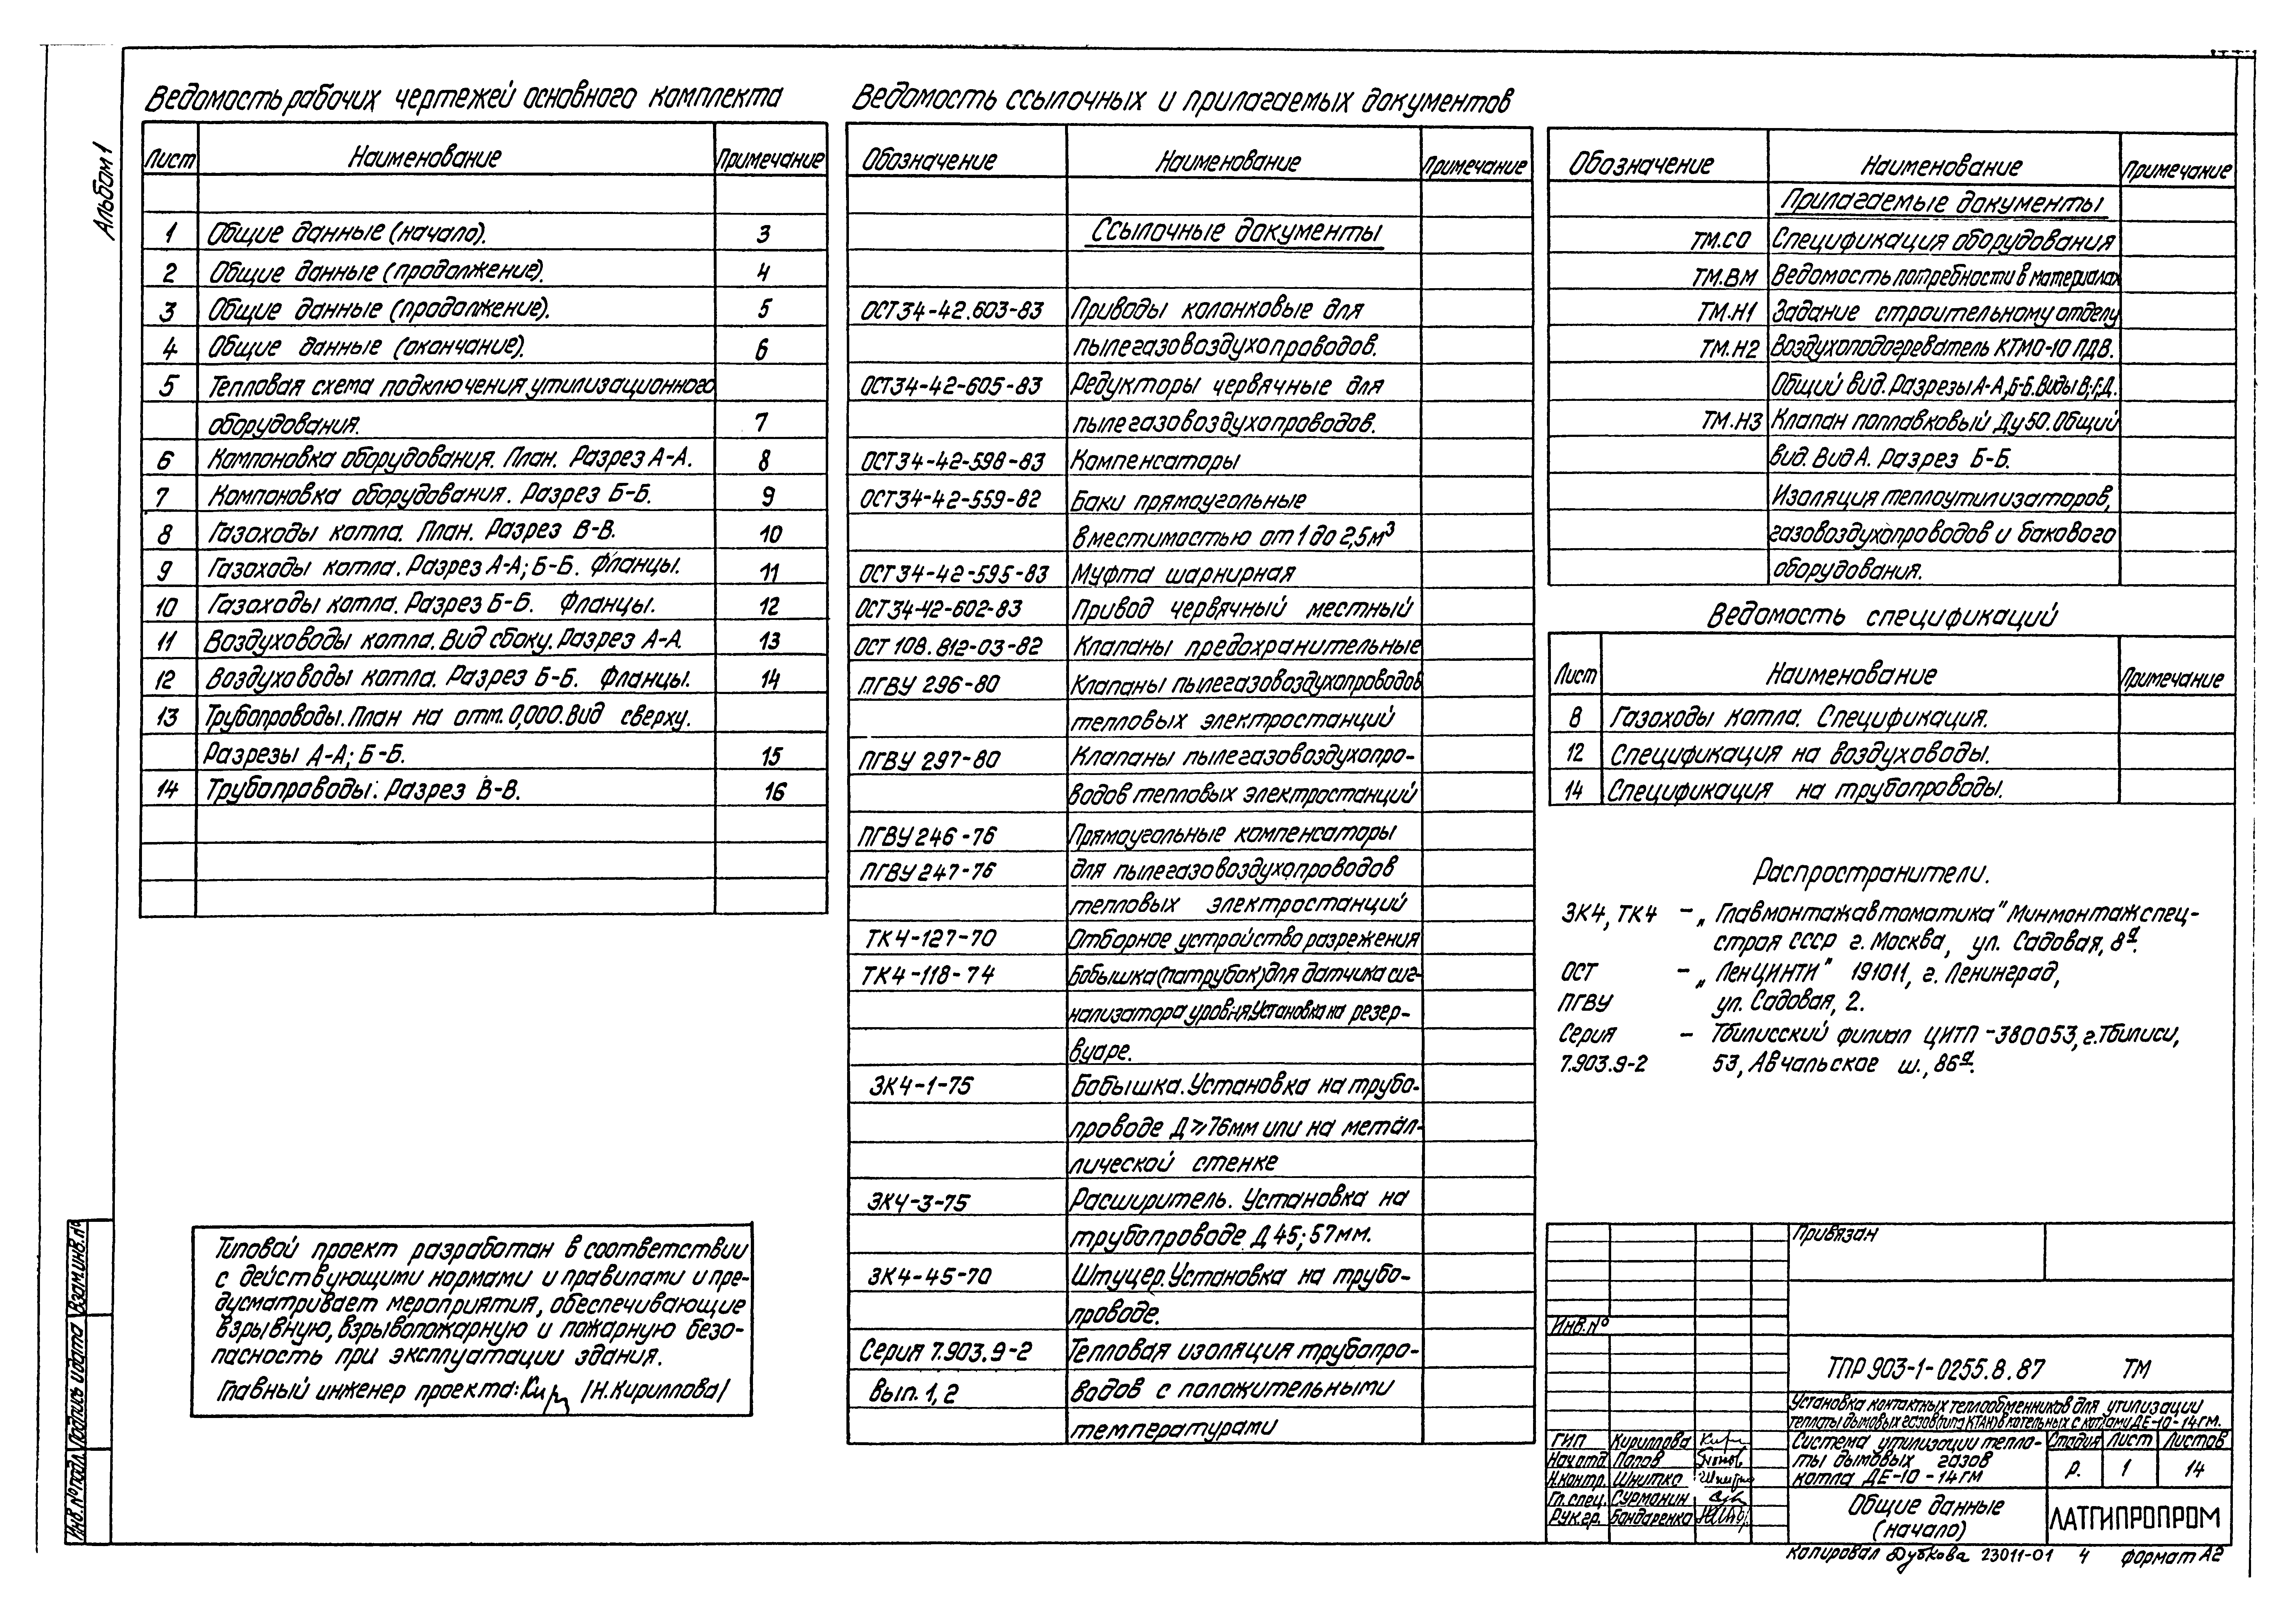 Альбом 1
Ведомость рабочих чертежей основного комплекта
Лист Наименование Примечание
1 Общие данные (начало). 3
2 Общие данные (продолжение). 4
3 Общие данные (продолжение). 5
4 Общие данные (окончание). 6
5 Тепловая схема подключения утилизационного
оборудования. 7
6 Компоновка оборудования. План. Разрез А-А. 8
7 Компоновка оборудования. Разрез Б-Б. 9
8 Газоходы котла. План. Разрез В-В. 10
9 Газоходы котла. Разрез А-А; Б-Б. Фланцы. 11
10 Газоходы котла. Разрез Б-Б. Фланцы. 12
11 Воздуховоды котла. Вид сбоку. Разрез А-А. 13
12 Воздуховоды котла. Разрез Б-Б. Фланцы. 14
13 Трубопроводы. План на отм. 0,000. Вид сверху.
Разрезы А-А; Б-Б. 15
14 Трубопроводы. Разрез В-В. 16
Типовой проект разработан в соответствии
с действующими нормами и правилами и пре-
дусматривает мероприятия, обеспечивающие
взрывную, взрывопожарную и пожарную безо-
пасность при эксплуатации здания.
Главный инженер проекта: Кир /Н.Кириллова/
Ведомость ссылочных и прилагаемых документов
Обозначение Наименование Примечание
Ссылочные документы
ОСТ34-42.603-83 Приводы колонковые для
пылегазовоздухопроводов.
ОСТ34-42-605-83 Редукторы червячные для
пылегазовоздухопроводов.
ОСТ34-42-598-83 Компенсаторы
ОСТ34-42-559-82 Баки прямоугольные
вместимостью от 1 до 2,5м³
ОСТ34-42-595-83 Муфта шарнирная
ОСТ34-42-602-83 Привод червячный местный
ОСТ 108.812-03-82 Клапаны предохранительные
ПГВУ 296-80 Клапаны пылегазовоздухопроводов
тепловых электростанций
ПГВУ 297-80 Клапаны пылегазовоздухопро-
водов тепловых электростанций
ПГВУ 246-76 Прямоугольные компенсаторы
ПГВУ 247-76 для пылегазовоздухопроводов
тепловых электростанций
ТК4-127-70 Отборное устройство разрежения
ТК4-118-74 Бобышка (патрубок) для датчика сиг-
нализатора уровня. Установка на резер-
вуаре.
ЗК4-1-75 Бобышка. Установка на трубо-
проводе Д⩾76мм или на метал-
лической стенке
ЗК4-3-75 Расширитель. Установка на
трубопроводе Д 45; 57мм.
ЗК4-45-70 Штуцер. Установка на трубо-
проводе.
Серия 7.903.9-2 Тепловая изоляция трубопро-
вып. 1, 2 водов с положительными
температурами
Обозначение Наименование Примечание
Прилагаемые документы
ТМ.СО Спецификация оборудования
ТМ.ВМ Ведомость потребности в материалах
ТМ.Н1 Задание строительному отделу
ТМ.Н2 Воздухоподогреватель КТМО-10 ПДВ.
Общий вид. Разрезы А-А, Б-Б. Виды В; Г; Д.
ТМ.Н3 Клапан поплавковый Ду50. Общий
вид. Вид А. Разрез Б-Б.
Изоляция теплоутилизаторов,
газовоздухопроводов и бакового
оборудования.
Ведомость спецификаций
Лист Наименование Примечание
8 Газоходы котла. Спецификация.
12 Спецификация на воздуховоды.
14 Спецификация на трубопроводы.
Распространители.
ЗК4, ТК4 – „Главмонтажавтоматика" Минмонтажспец-
строя СССР г. Москва, ул. Садовая, 8а.
ОСТ – „ЛенЦИНТИ" 191011, г. Ленинград,
ПГВУ ул. Садовая, 2.
Серия – Тбилисский филиал ЦИТП - 380053, г. Тбилиси,
7.903.9-2 53, Авчальское ш., 86а.
Привязан
Инв.№
ТПР 903-1-0255.8.87 ТМ
Установка контактных теплообменников для утилизации
теплоты дымовых газов (типа КТАН) в котельных с котлами ДЕ-10-14ГМ.
ГИП Кириллова
Нач.отд Попов
Н.контр. Шнитко
Гл.спец. Сурманин
Рук.гр. Бондаренко
Система утилизации тепло-
ты дымовых газов
котла ДЕ-10-14ГМ
Стадия Лист Листов
Р. 1 14
Общие данные
(начало)
ЛАТГИПРОПРОМ
Копировал Дубкова 23011-01 4 формат А2
Взам.инв.№
Подпись и дата
Инв.№подл.